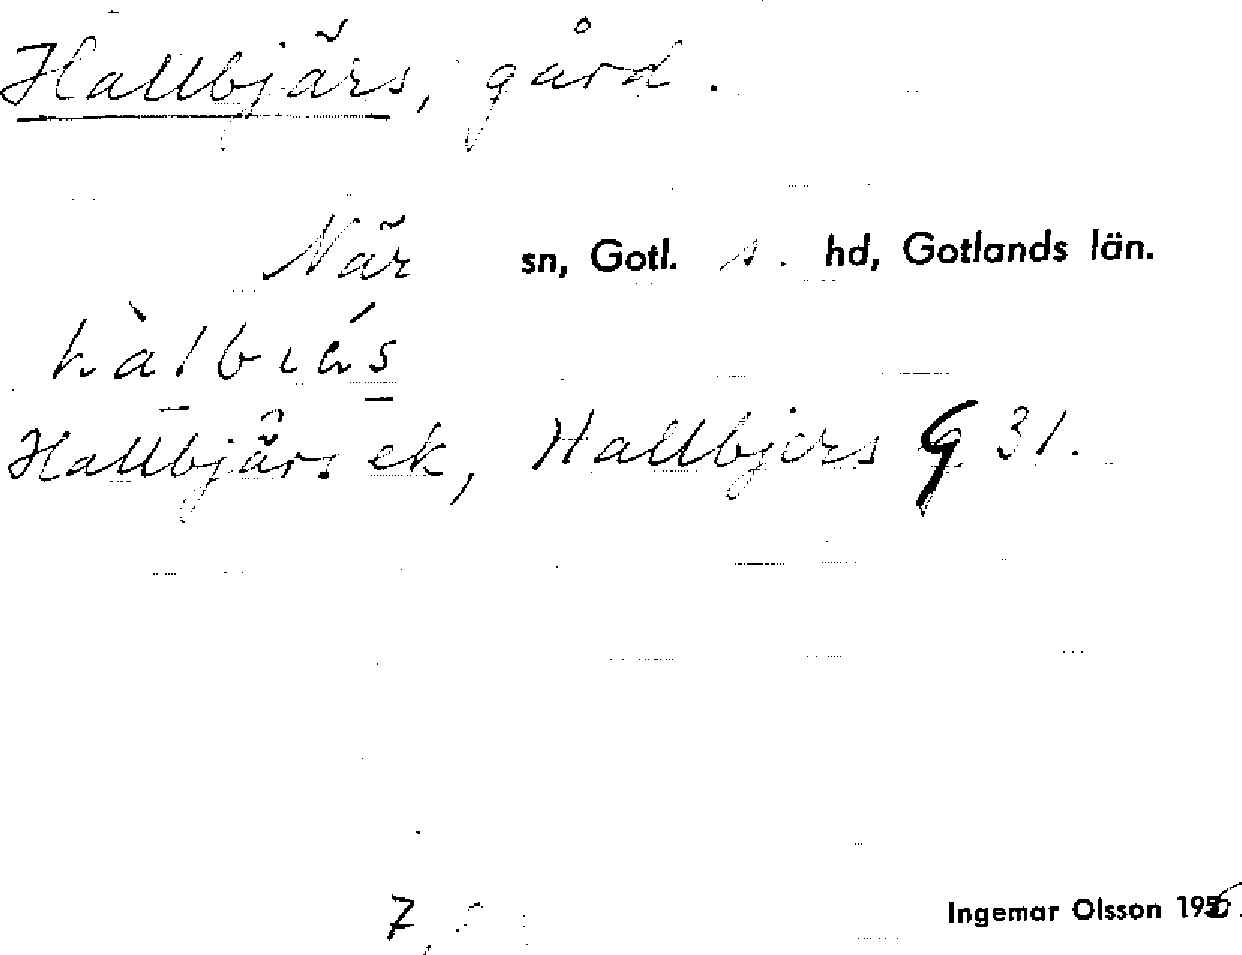 Hallbjärs, gård.
När sn, Gotl. s. hd, Gotlands län.
hàlbiás
Hallbjärs ek, Hallbjers G 31.
7
Ingemar Olsson 1956.